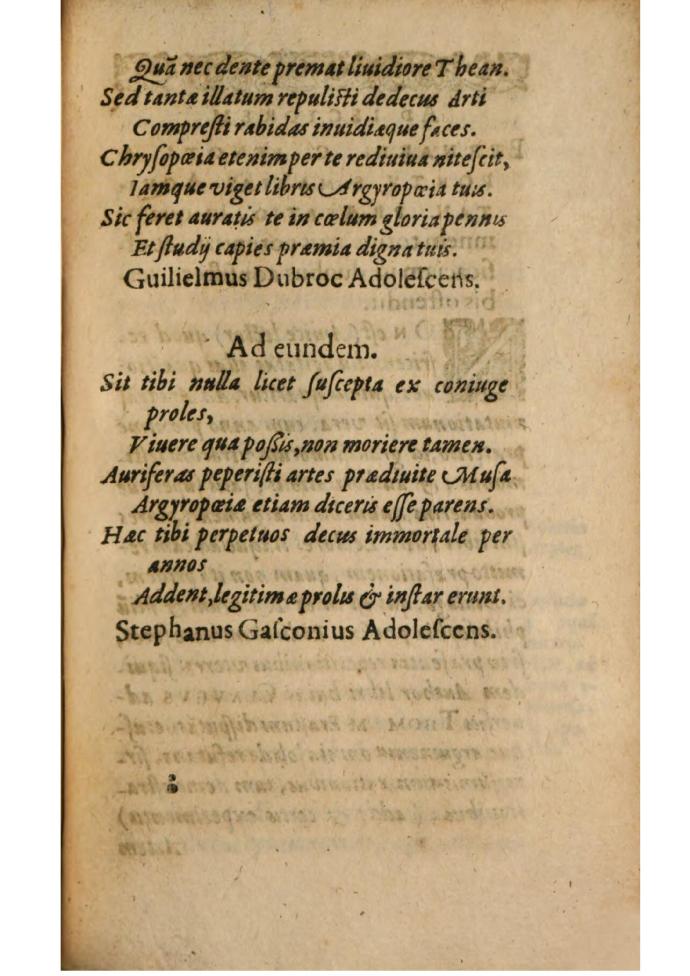 Quã nec dente premat liuidiore Thean.
Sed tantæ illatum repulisti dedecus Arti
Compresti rabidas inuidiæque faces.
Chrysopœia etenim per te rediuiua nitescit,
Iamque viget libris Argyropœia tuis.
Sic feret auratis te in cœlum gloria pennis
Et studij capies præmia digna tuis.
Guilielmus Dubroc Adolescens.
Ad eundem.
Sit tibi nulla licet suscepta ex coniuge
proles,
Viuere qua possis, non moriere tamen.
Auriferas peperisti artes prædiuite Musa
Argyropœiæ etiam diceris esse parens.
Hæc tibi perpetuos decus immortale per
annos
Addent, legitimæ prolis & instar erunt.
Stephanus Gasconius Adolescens.